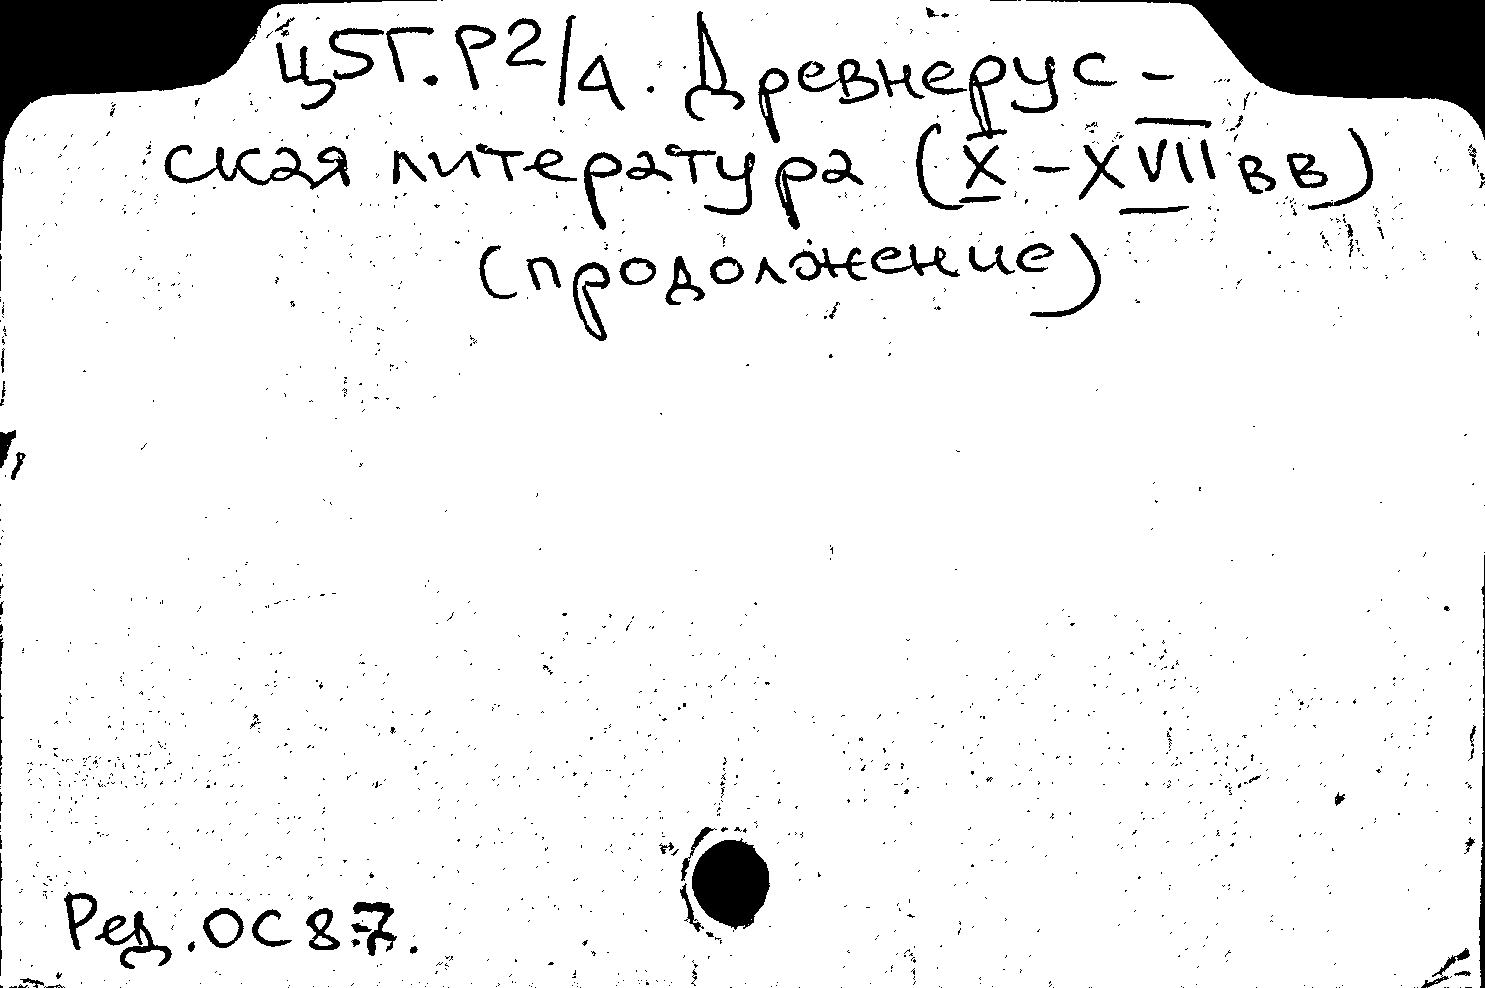 Ц5Г.Р2/4. Древнерус-
ская литература (X-XVII вв)
(продолжение)
Ред. ОС 87.